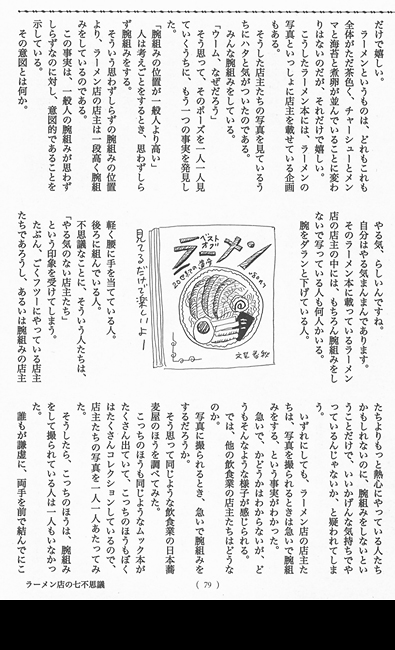 だけで嬉しい。
ラーメンというものは、どれもこれも
全体がただ茶色く、チャーシューとメン
マと海苔と煮卵が並んでいることに変わ
りはないのだが、それだけで嬉しい。
こうしたラーメン本には、ラーメンの
写真といっしょに店主を載せている企画
もある。
そうした店主たちの写真を見ているう
ちにハタと気がついたのである。
みんな腕組みをしている。
「ウーム、なぜだろう」
そう思って、そのポーズを一人一人見
ていくうちに、もう一つの事実を発見し
た。
「腕組みの位置が一般人より高い」
人は考えごとをするとき、思わずしら
ず腕組みをする。
そういう思わずしらずの腕組みの位置
より、ラーメン店の店主は一段高く腕組
みをしているのである。
この事実は、一般人の腕組みが思わず
しらずなのに対し、意図的であることを
示している。
その意図とは何か。
やる気、らしいんですね。
自分はやる気まんまんであります。
そのラーメン本に載っているラーメン
店の店主の中には、もちろん腕組みをし
ないで写っている人も何人かいる。
腕をダランと下げている人。
ラーメン
ベスト
オブ
見てるだけで楽しいよー
軽く腰に手を当てている人。
後ろに組んでいる人。
不思議なことに、そういう人たちは、
「やる気のない店主たち」
という印象を受けてしまう。
たぶん、ごくフツーにやっている店主
たちであろうし、あるいは腕組みの店主
たちよりもっと熱心にやっている人たち
かもしれないのに、腕組みをしないとい
うことだけで、いいかげんな気持ちでや
っているんじゃないか、と疑われてしま
う。
いずれにしても、ラーメン店の店主た
ちは、写真を撮られるときは急いで腕組
みをする、という事実がわかった。
急いで、かどうかはわからないが、ど
うもそんなような様子が感じられる。
では、他の飲食業の店主たちはどうな
のか。
写真に撮られるとき、急いで腕組みを
するだろうか。
そう思って同じような飲食業の日本蕎
麦屋のほうを調べてみた。
こっちのほうも同じようなムック本が
たくさん出ていて、こっちのほうもぼく
はたくさんコレクションしているので、
店主たちの写真を一人一人あたってみ
た。
そうしたら、こっちのほうは、腕組み
をして撮られている人は一人もいなかっ
た。
誰もが謙虚に、両手を前で結んでにこ
ラーメン店の七不思議
( 79 )